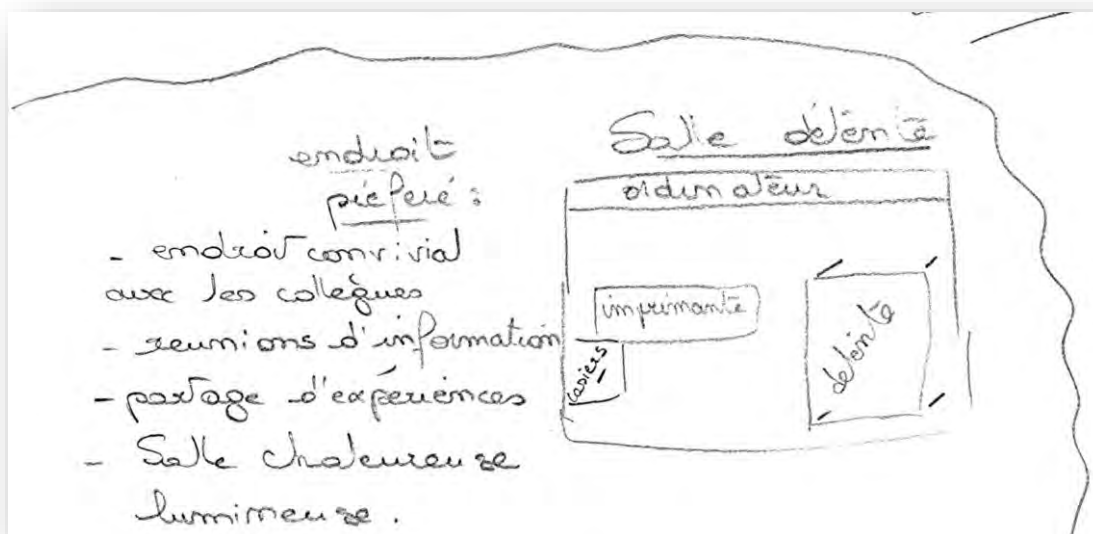 endroit
préferé :
- endroit convivial
avec les collègues
- reunions d'information
- partage d'expériences
- Salle chaleureuse
lumineuse.
Salle détente
ordinateur
imprimante
casiers
détente